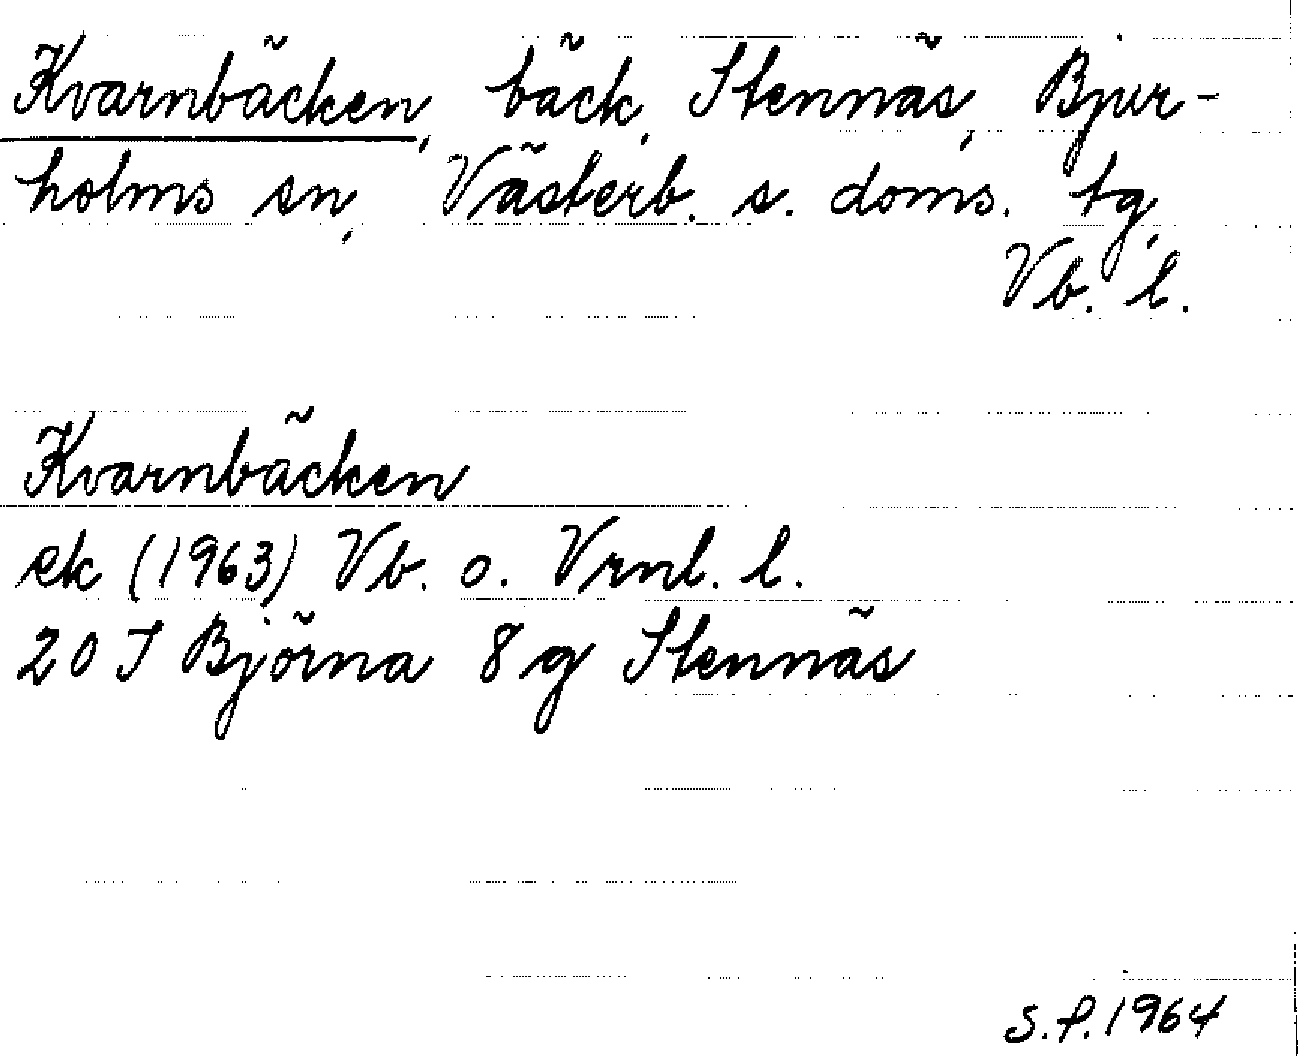 Kvarnbäcken, bäck, Stennäs, Bjur-
holms sn, Västerb. s. doms. tg,
Vb. l.
Kvarnbäcken
ek (1963) Vb. o. Vrnl. l.
20 I Björna 8 g Stennäs
S.P. 1964